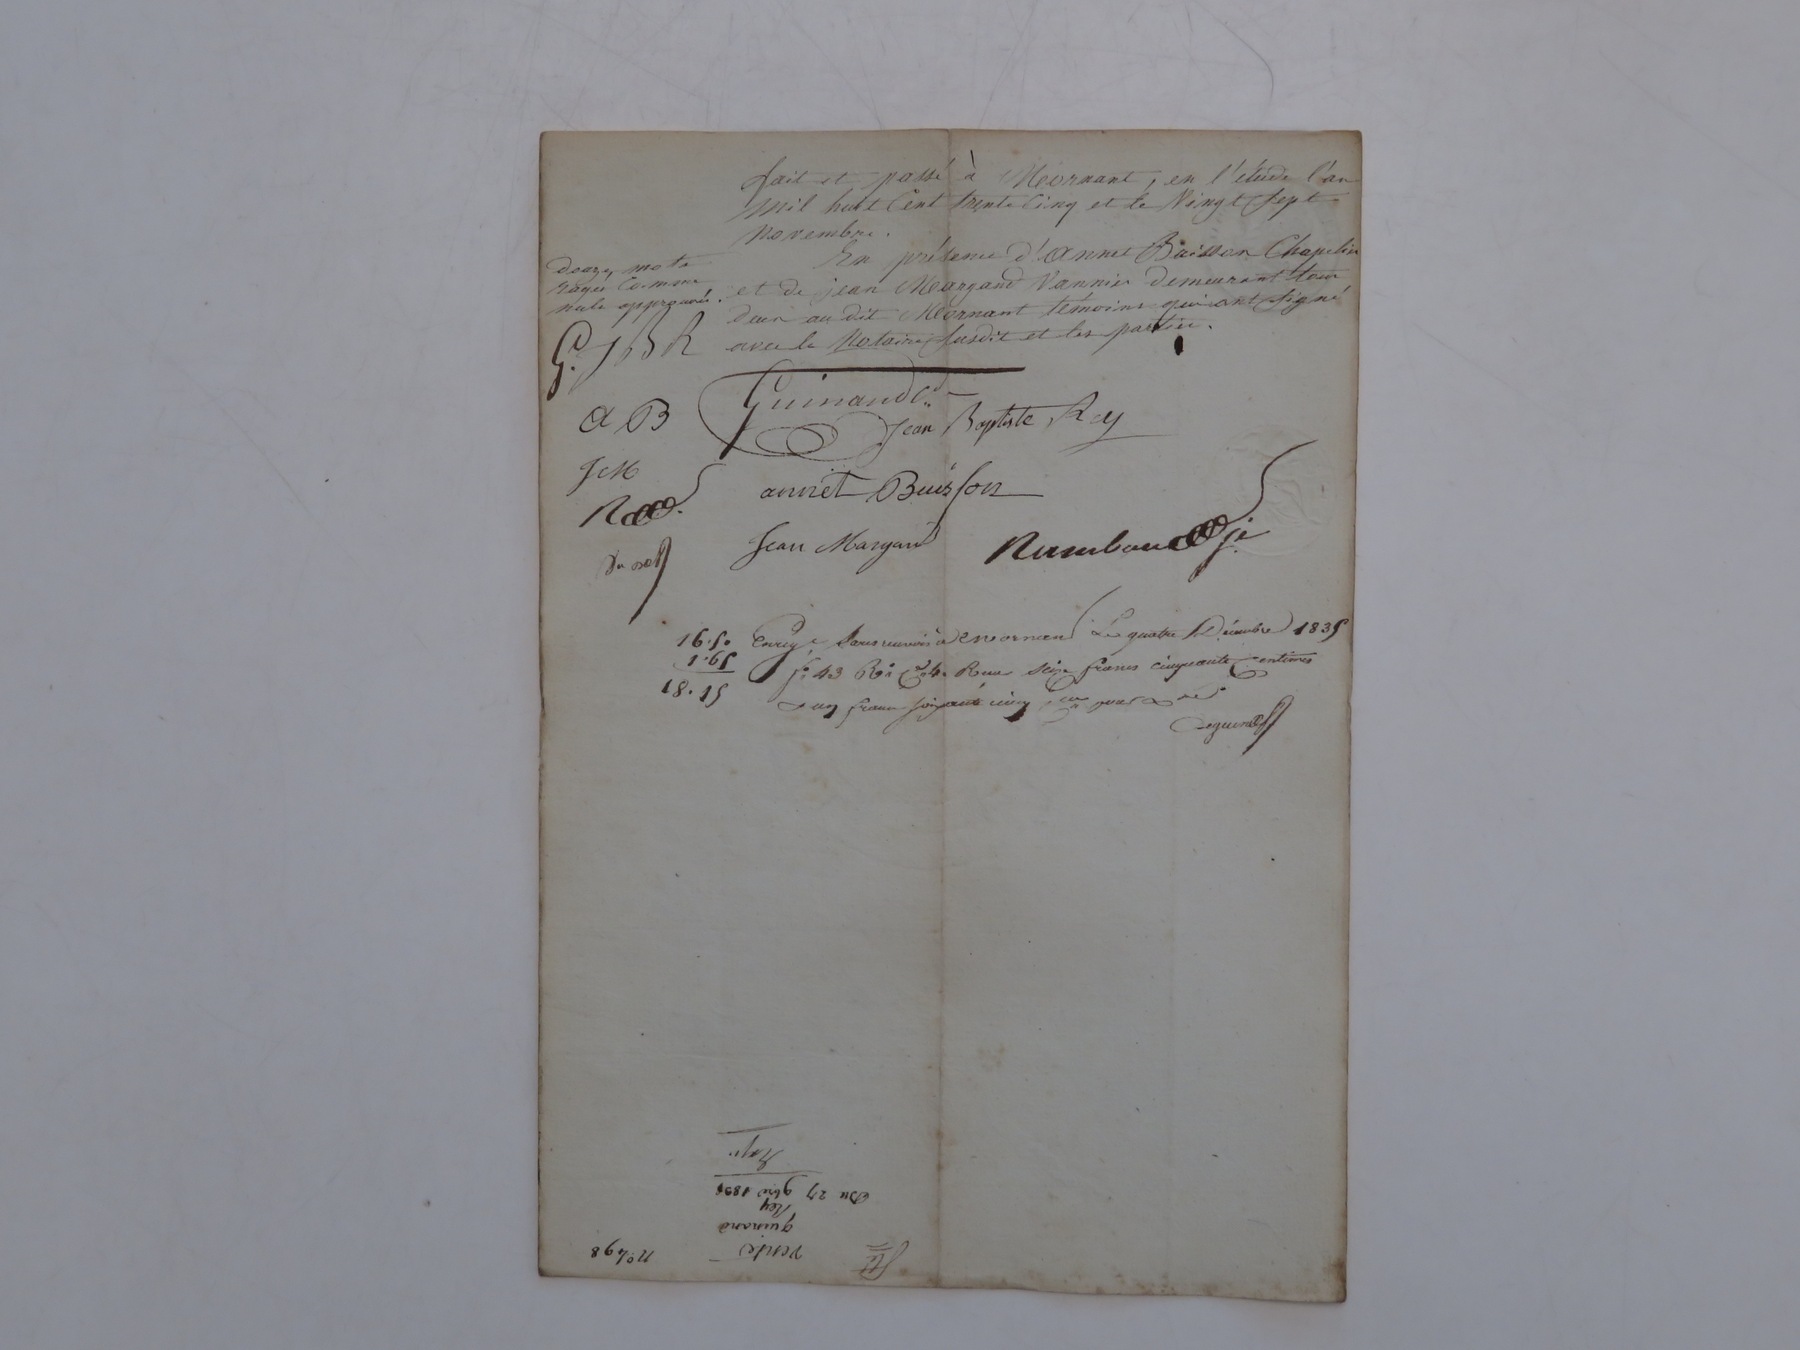 fait et passé à Mornant, en l'étude l'an
mil huit Cent trente cinq et le Vingt Sept
Novembre.
En présence d'Annet Buisson Chapelier
et de jean Margand Vannier demeurant tous
deux au dit Mornant témoins qui ont signé
avec le Notaire susdit et les parties.
douze mots
rayés Comme
nuls approuvés.
G. JBR
Guinand
Jean Baptiste Rey
A B
annet Buisson
J M
Jean Margand
Rambaud
16.50
1.65
18.15
Enregé à Mornant Le quatre Décembre 1835
fo 43 Ro Ce 4. Reçu seize francs cinquante Centimes
un franc soixante cinq
n° 498
vente
guinand
Rey
Du 27 9bre 1835